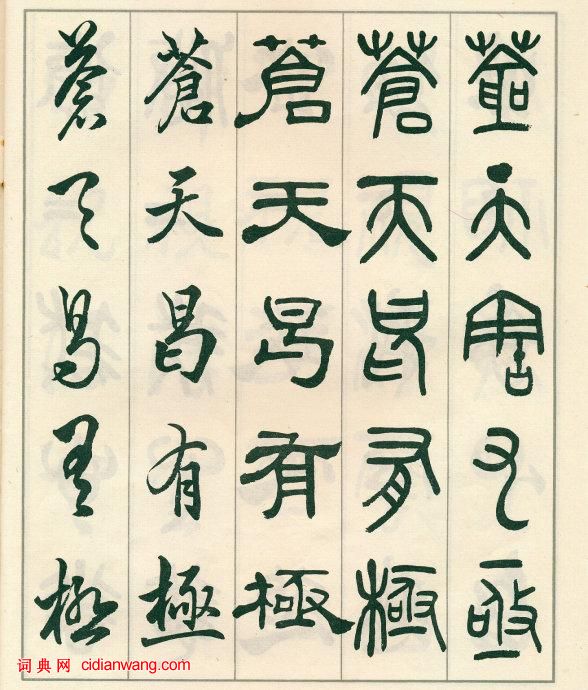 蒼天曷有極
蒼天曷有極
蒼天曷有極
蒼天曷有極
蒼天曷有極
词典网 cidianwang.com